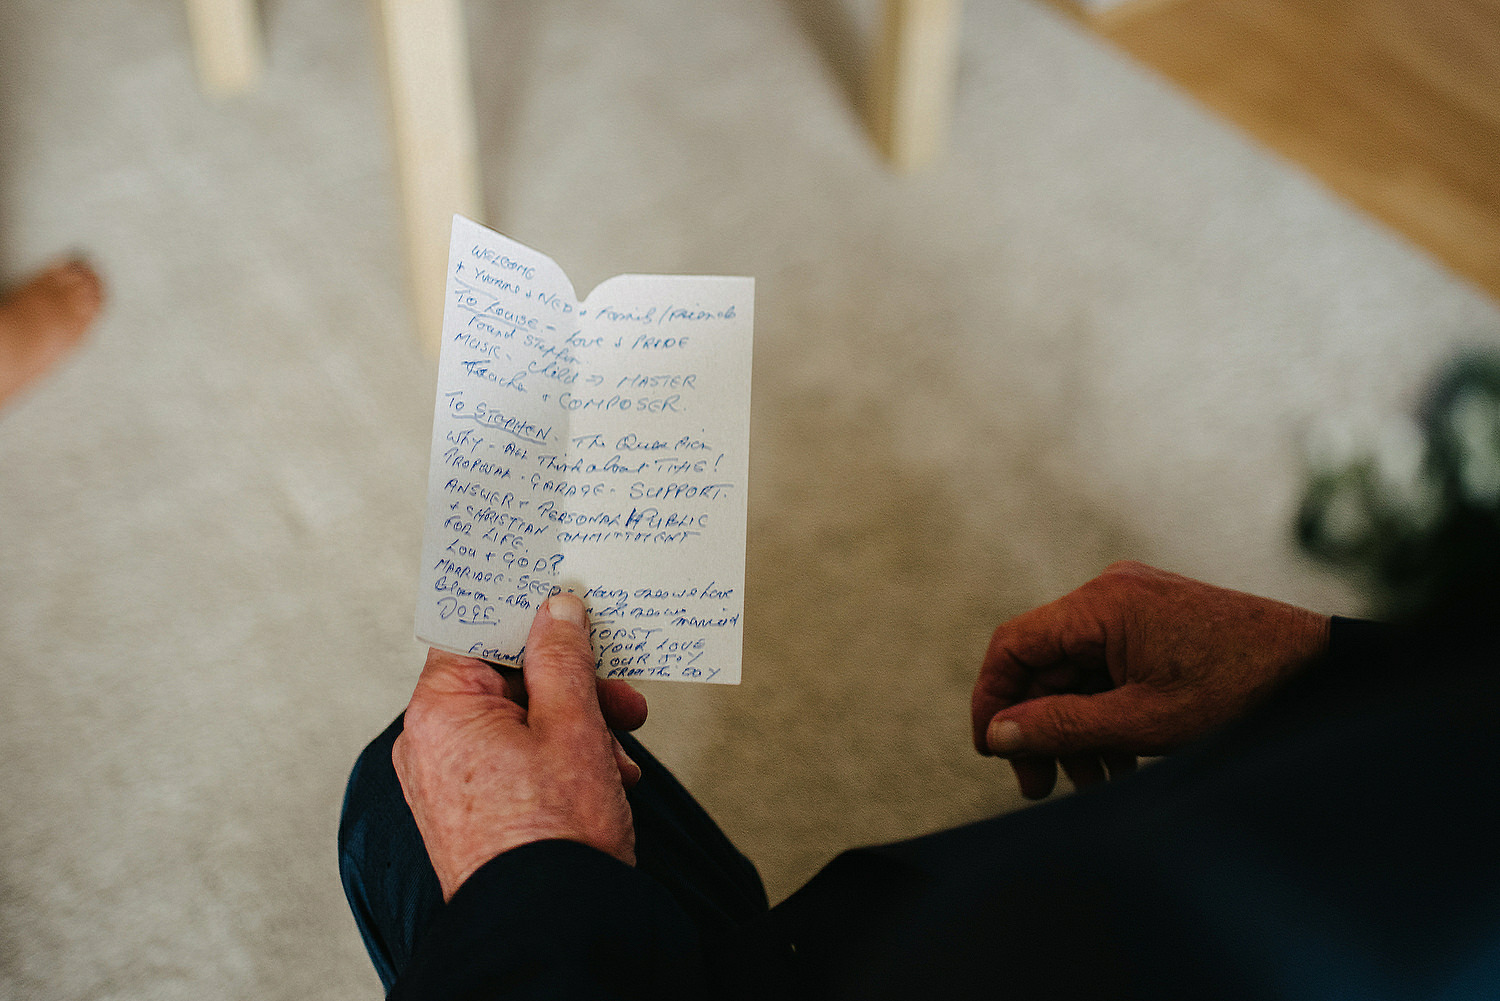 WELCOME
+ YVONNE + NED + Family/Friends
To LOUISE - LOVE & PRIDE
Found Stephen
MUSIC - Child => MASTER
Teacher + COMPOSER.
To STEPHEN - The Question
Why - ALL Think about TIME!
PROPOSAL - GARAGE - SUPPORT.
ANSWER + PERSONAL/PUBLIC
+ CHRISTIAN COMMITTMENT
FOR LIFE.
LOU + GOD?
MARRIAGE - SEED - Many ones we have
Blossom - when the ones we married
DOGE.
TOAST
Found YOUR LOVE
+ OUR JOY
FROM THIS DAY